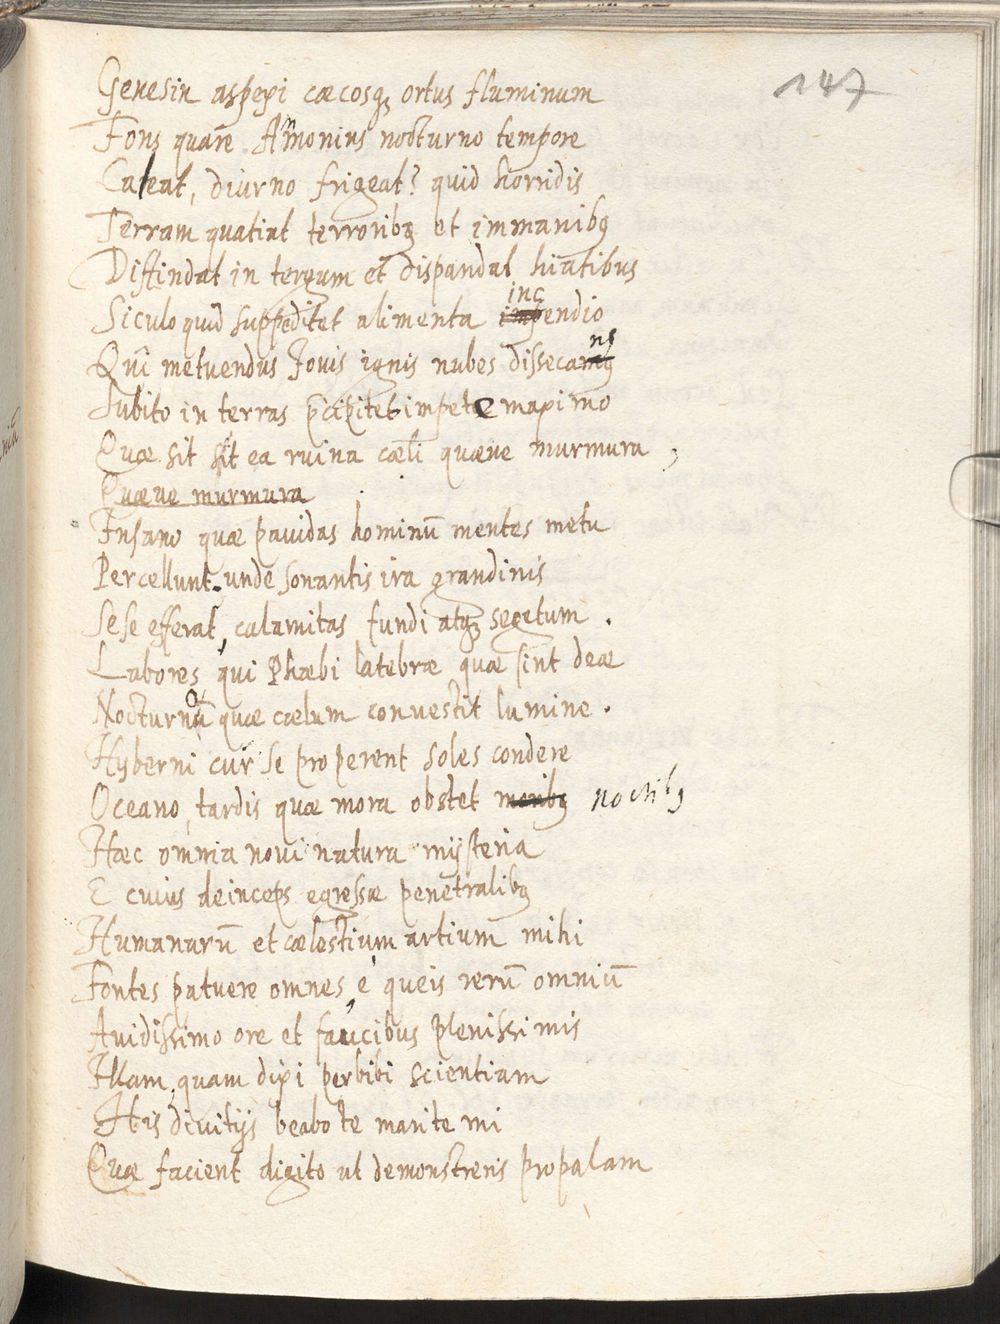 147
Genesin aspexi cæcosq; ortus fluminum
Fons quare Amonius nocturno tempore
Caleat, diurno frigeat? quid horridis
Terram quatiat terroribq et immanibq
Diffindat in tergum et dispandat hiatibus
inc
Siculo quid suppeditet alimenta impendio
ns
Qui metuendus Jovis ignis nubes dissecans
Subito in terras p̄cipitet impete maximo
Quæ sit sit ea ruina cæli quæve murmura ,
Quæve murmura
Insano quæ pavidas hominū mentes metu
Percellunt. unde sonantis ira grandinis
Sese efferat, calamitas fundi atq; segetum .
Labores qui Phæbi latebræ quæ sint deæ
Nocturnū quæ cælum convestit lumine .
Hyberni cur se properent soles condere
Oceano, tardis quæ mora obstet moribq noctibq
Hæc omnia novi natura mysteria
E cuius deinceps egressæ penetralibq
Humanarū et cælestium artium mihi
Fontes patuere omnes, e queis rerū omniū
Avidissimo ore et faucibus plenissimis
Illam, quam dixi perbibi scientiam
His divitijs beabo te marite mi
Quæ facient digito ut demonstreris propalam